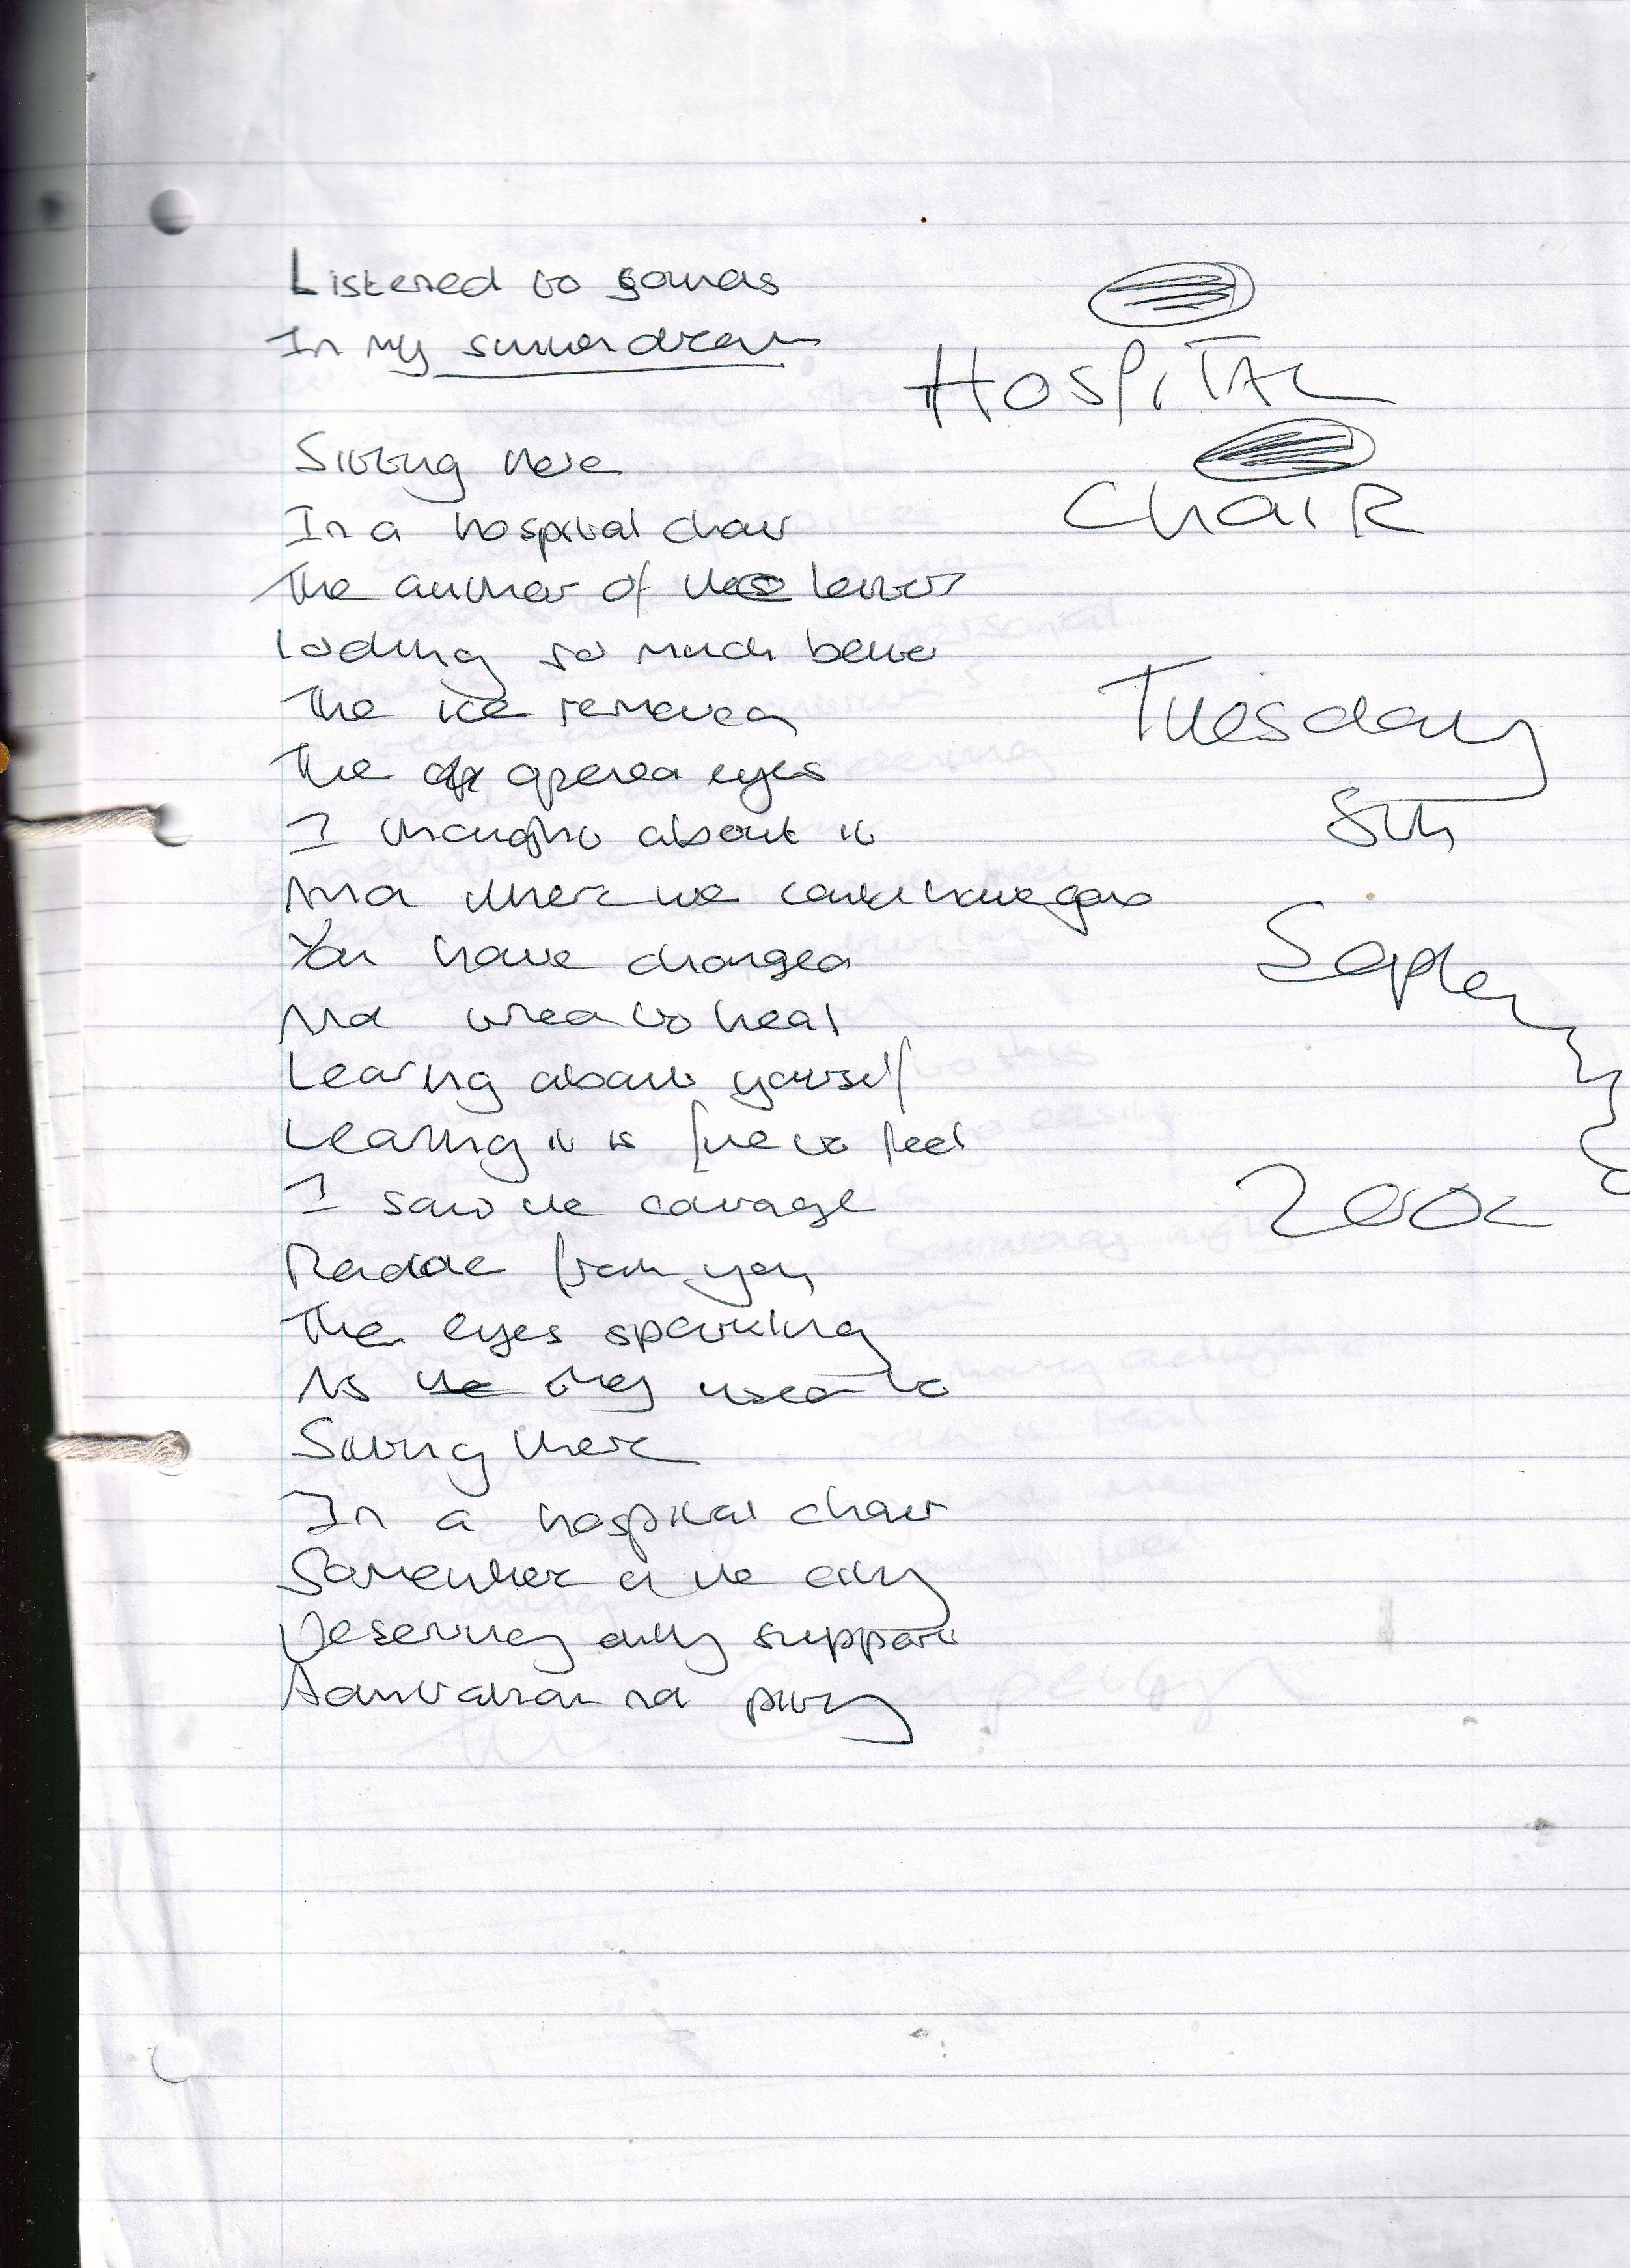 Listened to sounds
In my summer dream
HOSPITAL
CHAIR
Sitting there
In a hospital chair
The author of these letters
Looking so much better
The ice removed
The opened eyes
I thought about it
And where we could have gone
You have changed
And tried to heal
Learning about yourself
Learning it is fine to feel
I saw the courage
Radiate from you
The eyes sparkling
As the they used to
Sitting there
In a hospital chair
Somewhere in the city
Deserving only support
Admiration not pity
Tuesday
8th
Septem